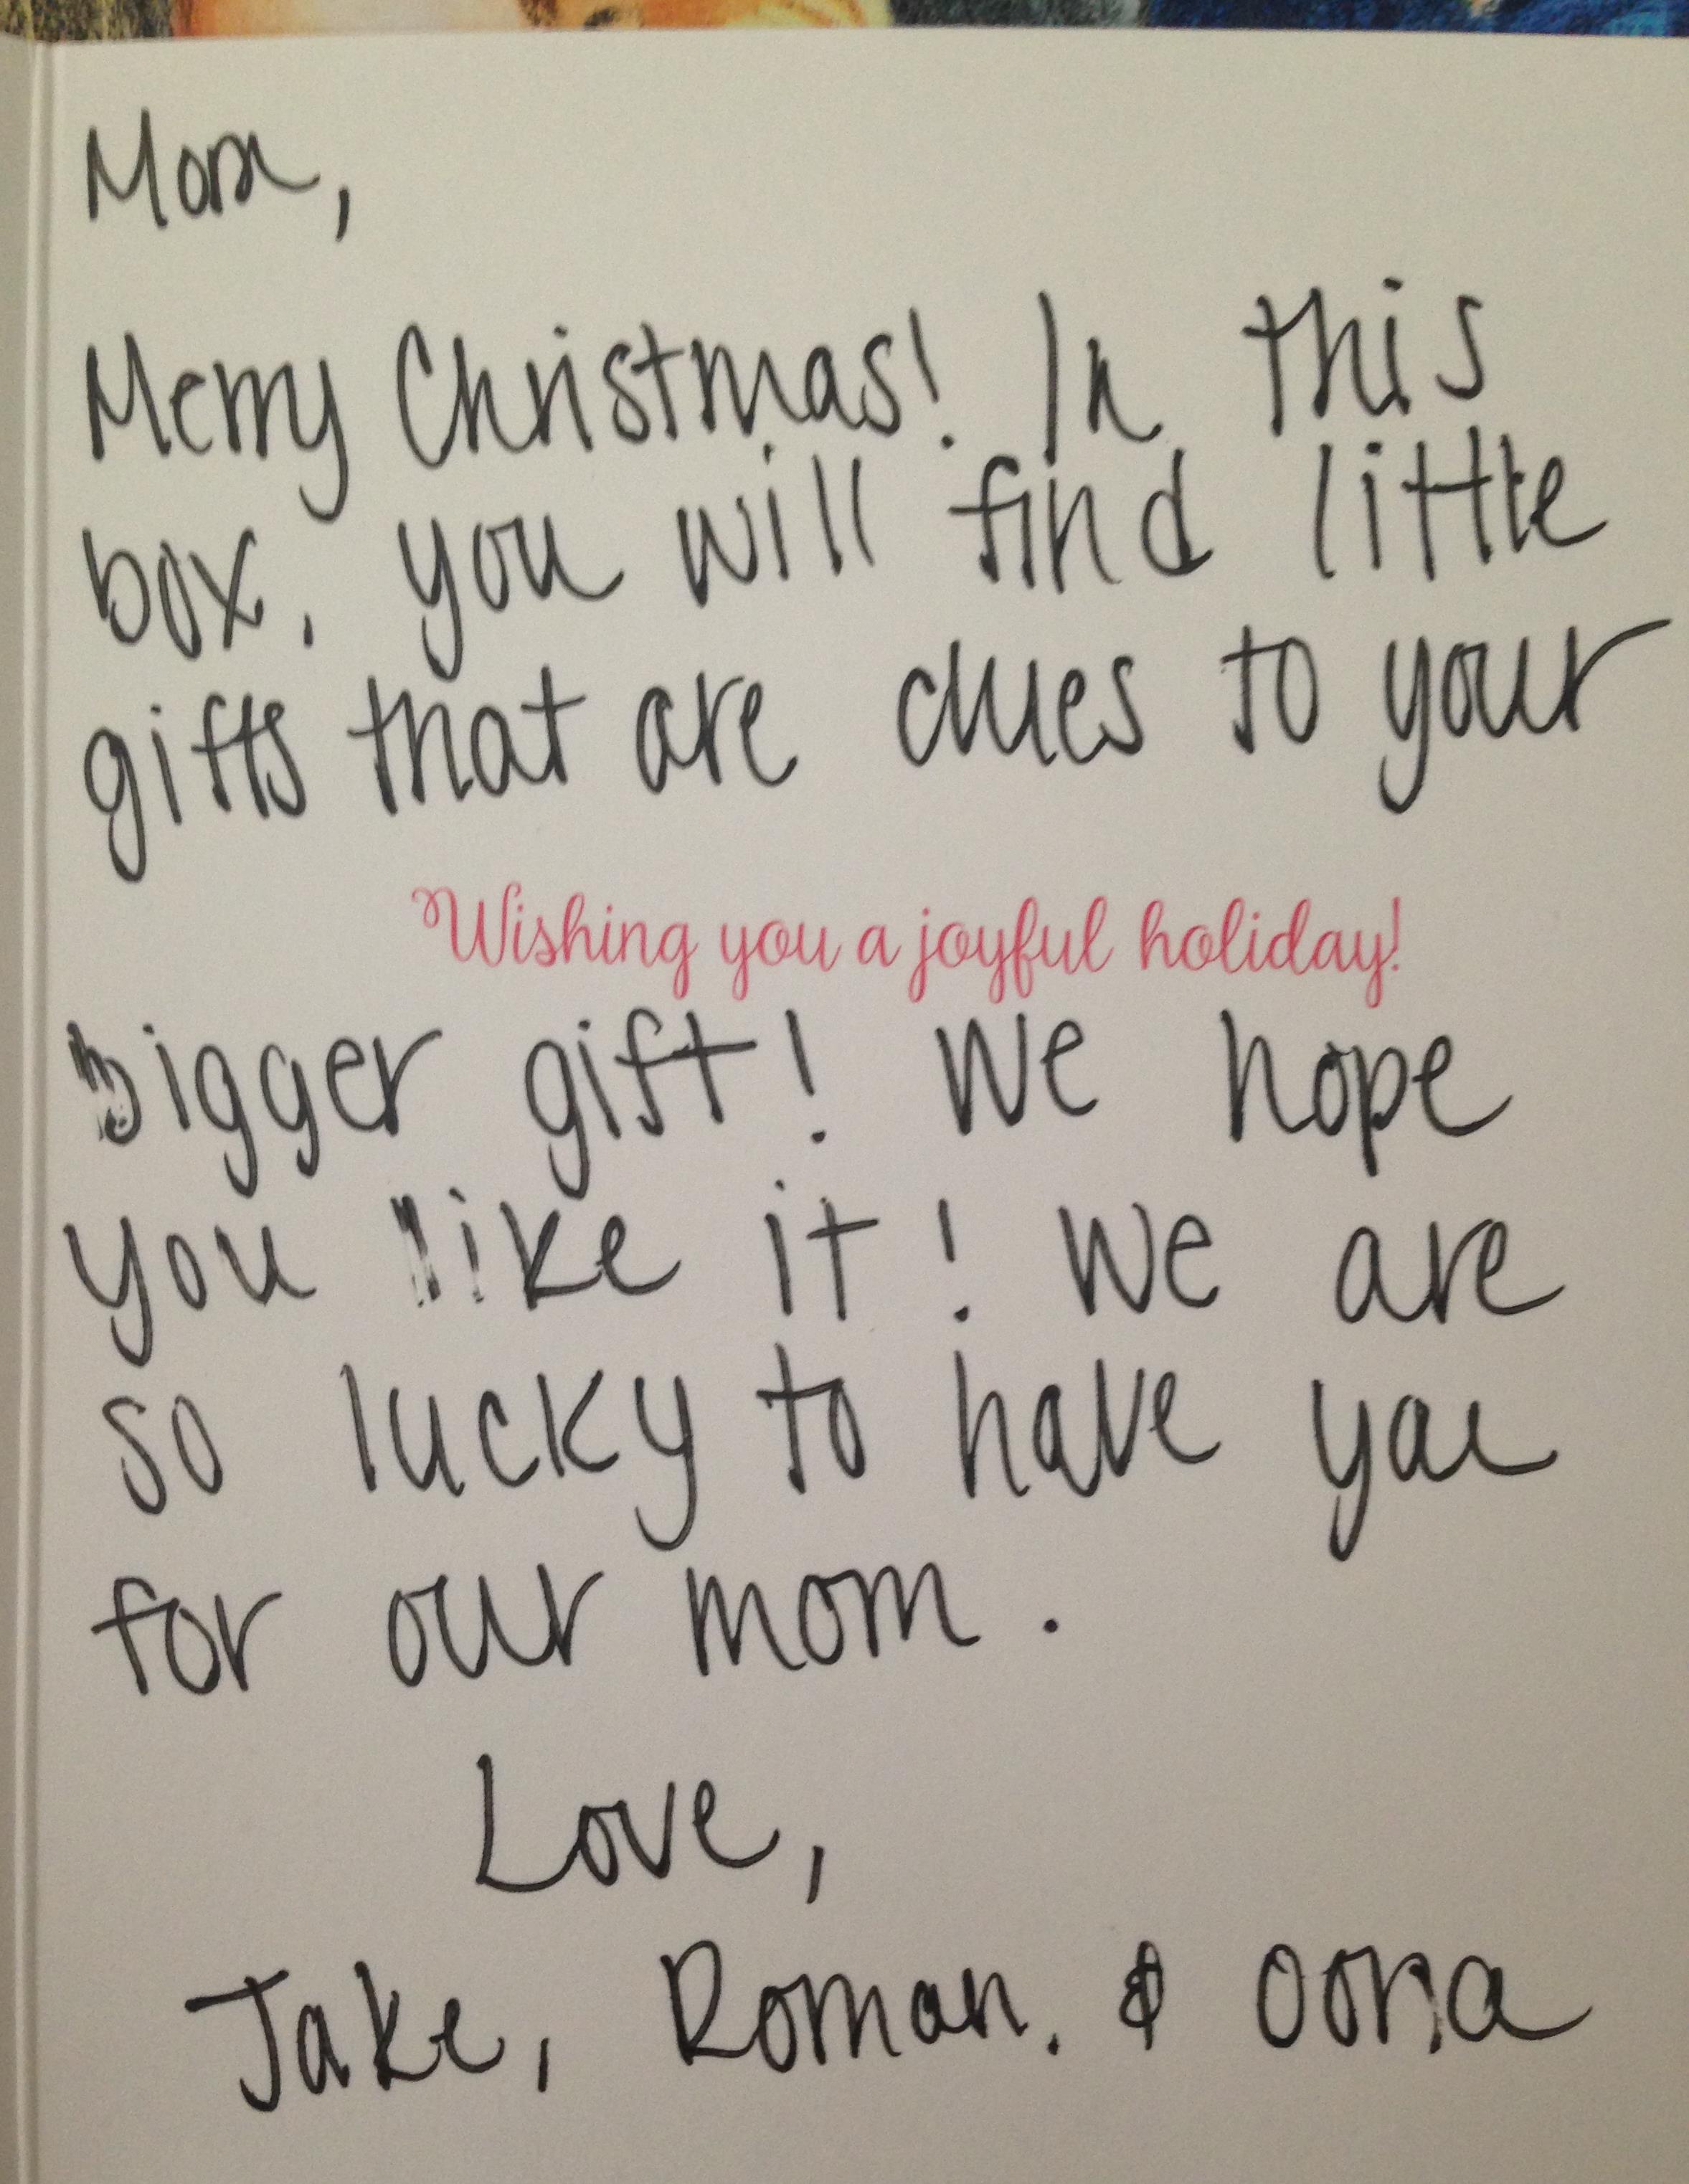 Mom,
Merry Christmas! In this
box, you will find little
gifts that are clues to your
Wishing you a joyful holiday!
bigger gift! We hope
you like it! We are
so lucky to have you
for our mom.
Love,
Jake, Roman, & Oona